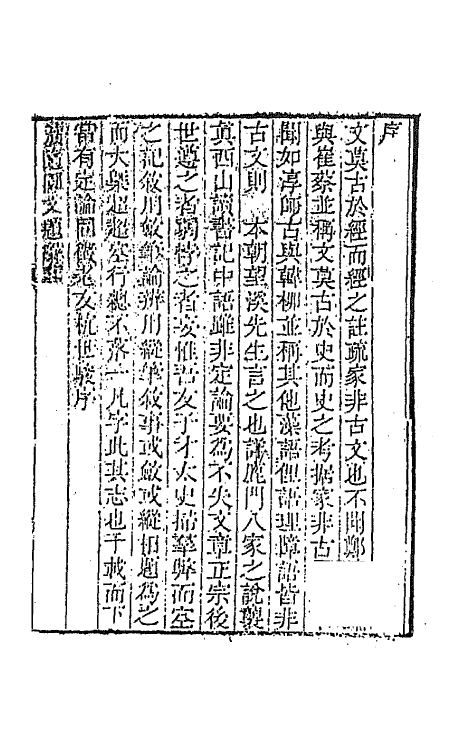 序
文莫古於經而經之註疏家非古文也不聞鄭
與崔蔡並稱文莫古於史而史之考据家非古
聞如淳師古與韓柳並稱其他藻語俚語理障語皆非
古文則 本朝望溪先生言之也詳鹿門八家之說襲
真西山讀書記中語雖非定論要為不失文章正宗後
世遵之者弱悖之者妄惟吾友子才太史掃羣弊而空
之記敘用敛 論辨用縱筆敘事或敛或縱相題為之
而大槩超超空行總不落一凡字此其志也千載而下
當有定論同徵老友杭世駿序